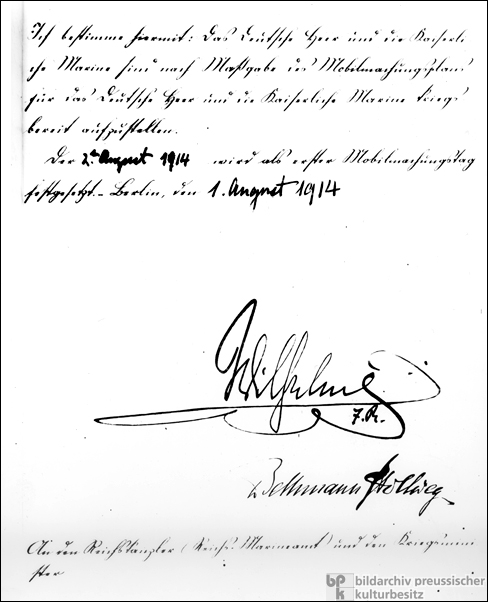 Ich bestimme hiermit: Das Deutsche Heer und die Kaiserli
che Marine sind nach Maßgabe des Mobilmachungsplans
für das Deutsche Heer und die Kaiserliche Marine kriegs
bereit aufzustellen.
Der 2te August 1914 wird als erster Mobilmachungstag
festgesetzt.- Berlin, den 1. August 1914
Wilhelm
I.R.
Bethmann Hollweg
An den Reichskanzler (Reichs-Marineamt) und den Kriegsmini
ster
bpk bildarchiv preussischer
kulturbesitz